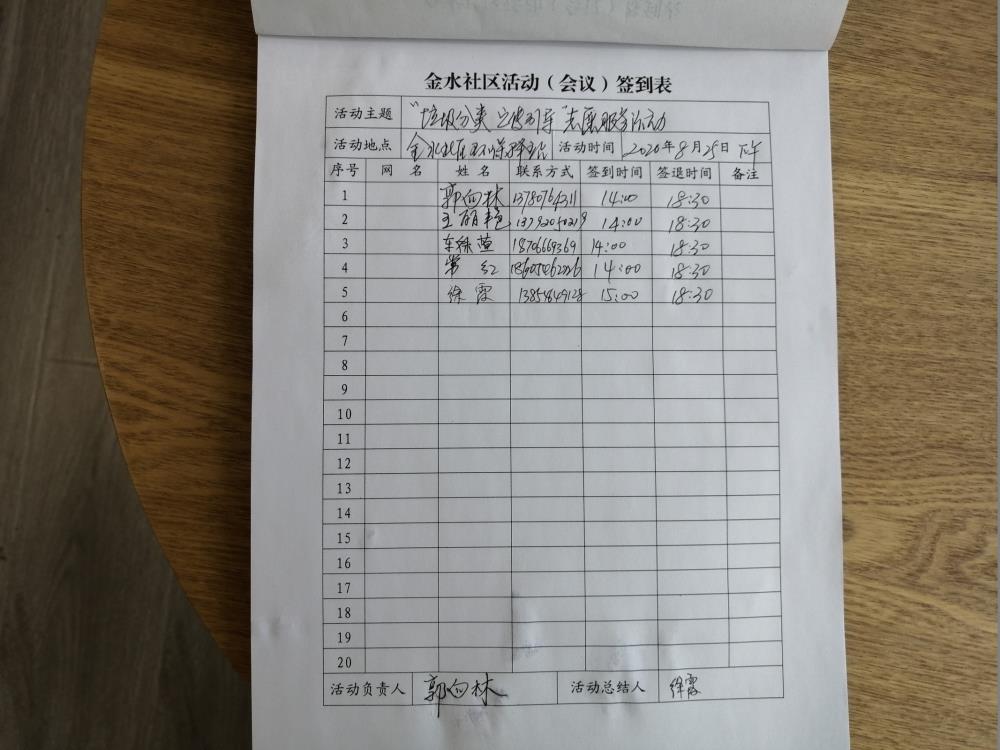 金水社区活动（会议）签到表
活动主题 “垃圾分类 宣传引导”志愿服务活动
活动地点 金水社区环保驿站 活动时间 2020年8月25日 下午
序号 网 名 姓 名 联系方式 签到时间 签退时间 备注
1 郭向林 13780764311 14:00 18:30
2 王丽艳 13792050219 14:00 18:30
3 18706669369 14:00 18:30
4 常 红 14:00 18:30
5 徐霞 13854849128 15:00 18:30
6
7
8
9
10
11
12
13
14
15
16
17
18
19
20
活动负责人 郭向林 活动总结人 徐霞